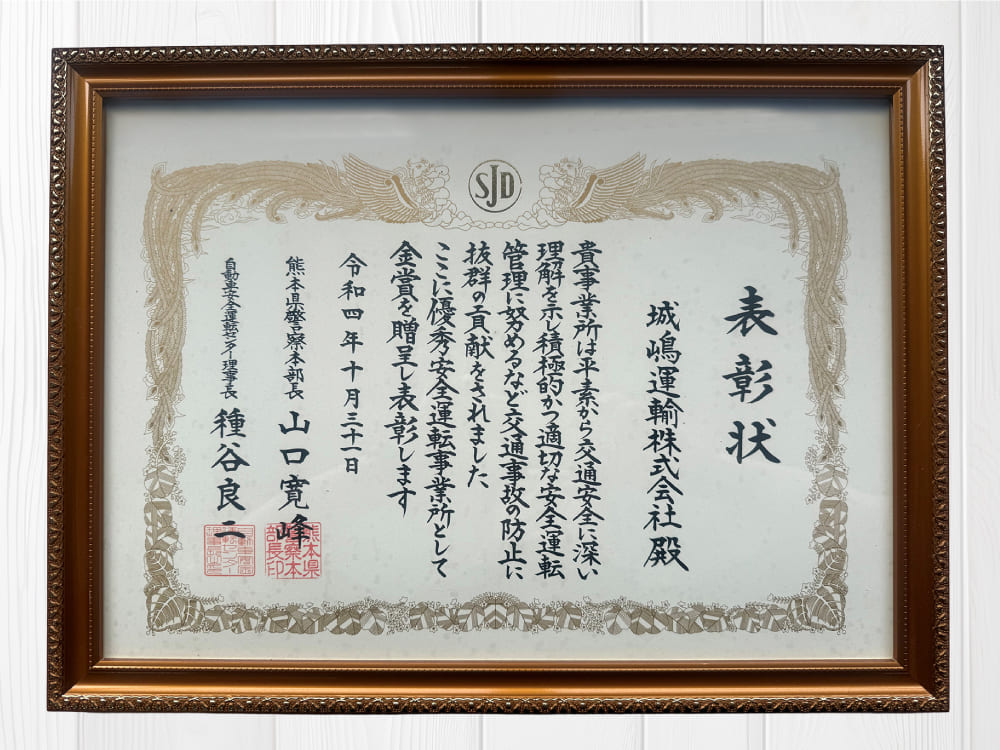 SJD
表彰状
城嶋運輸株式会社殿
貴事業所は平素から交通安全に深い
理解を示し積極的かつ適切な安全運転
管理に努めるなど交通事故の防止に
抜群の貢献をされました
ここに優秀安全運転事業所として
金賞を贈呈し表彰します
令和四年十月三十一日
熊本県警察本部長 山口寛峰
熊本県
警察本
部長印
自動車安全運転センター理事長 種谷良二